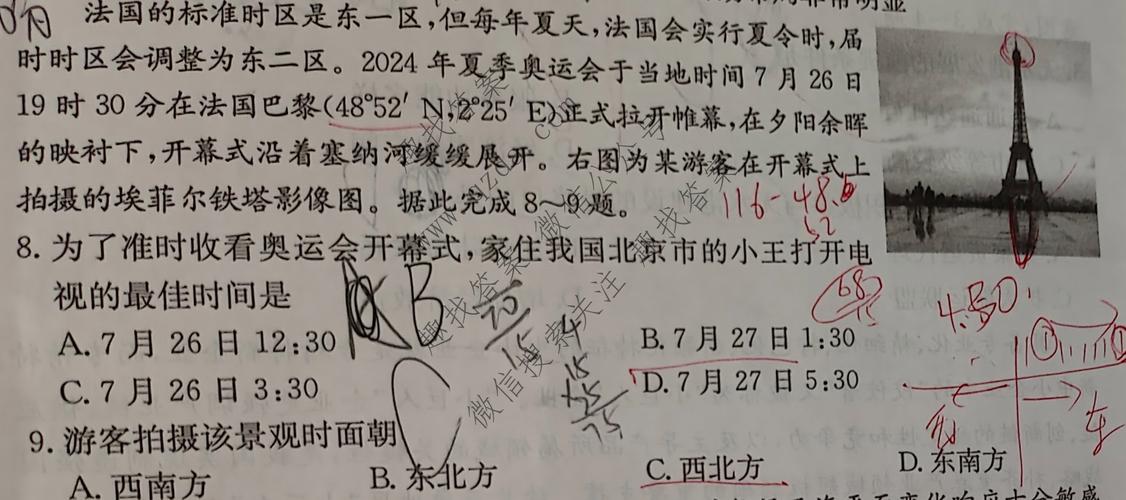 法国的标准时区是东一区,但每年夏天,法国会实行夏令时,届
时时区会调整为东二区。2024 年夏季奥运会于当地时间 7 月 26 日
19 时 30 分在法国巴黎(48°52′ N,2°25′ E)正式拉开帷幕,在夕阳余晖
的映衬下,开幕式沿着塞纳河缓缓展开。右图为某游客在开幕式上
拍摄的埃菲尔铁塔影像图。据此完成 8～9 题。
116-48.
52
8. 为了准时收看奥运会开幕式,家住我国北京市的小王打开电
视的最佳时间是
B
68
A. 7 月 26 日 12:30
B. 7 月 27 日 1:30
C. 7 月 26 日 3:30
D. 7 月 27 日 5:30
15
4
15
25
75
东
9. 游客拍摄该景观时面朝
A. 西南方
B. 东北方
C. 西北方
D. 东南方
微信搜索关注 趣找答案